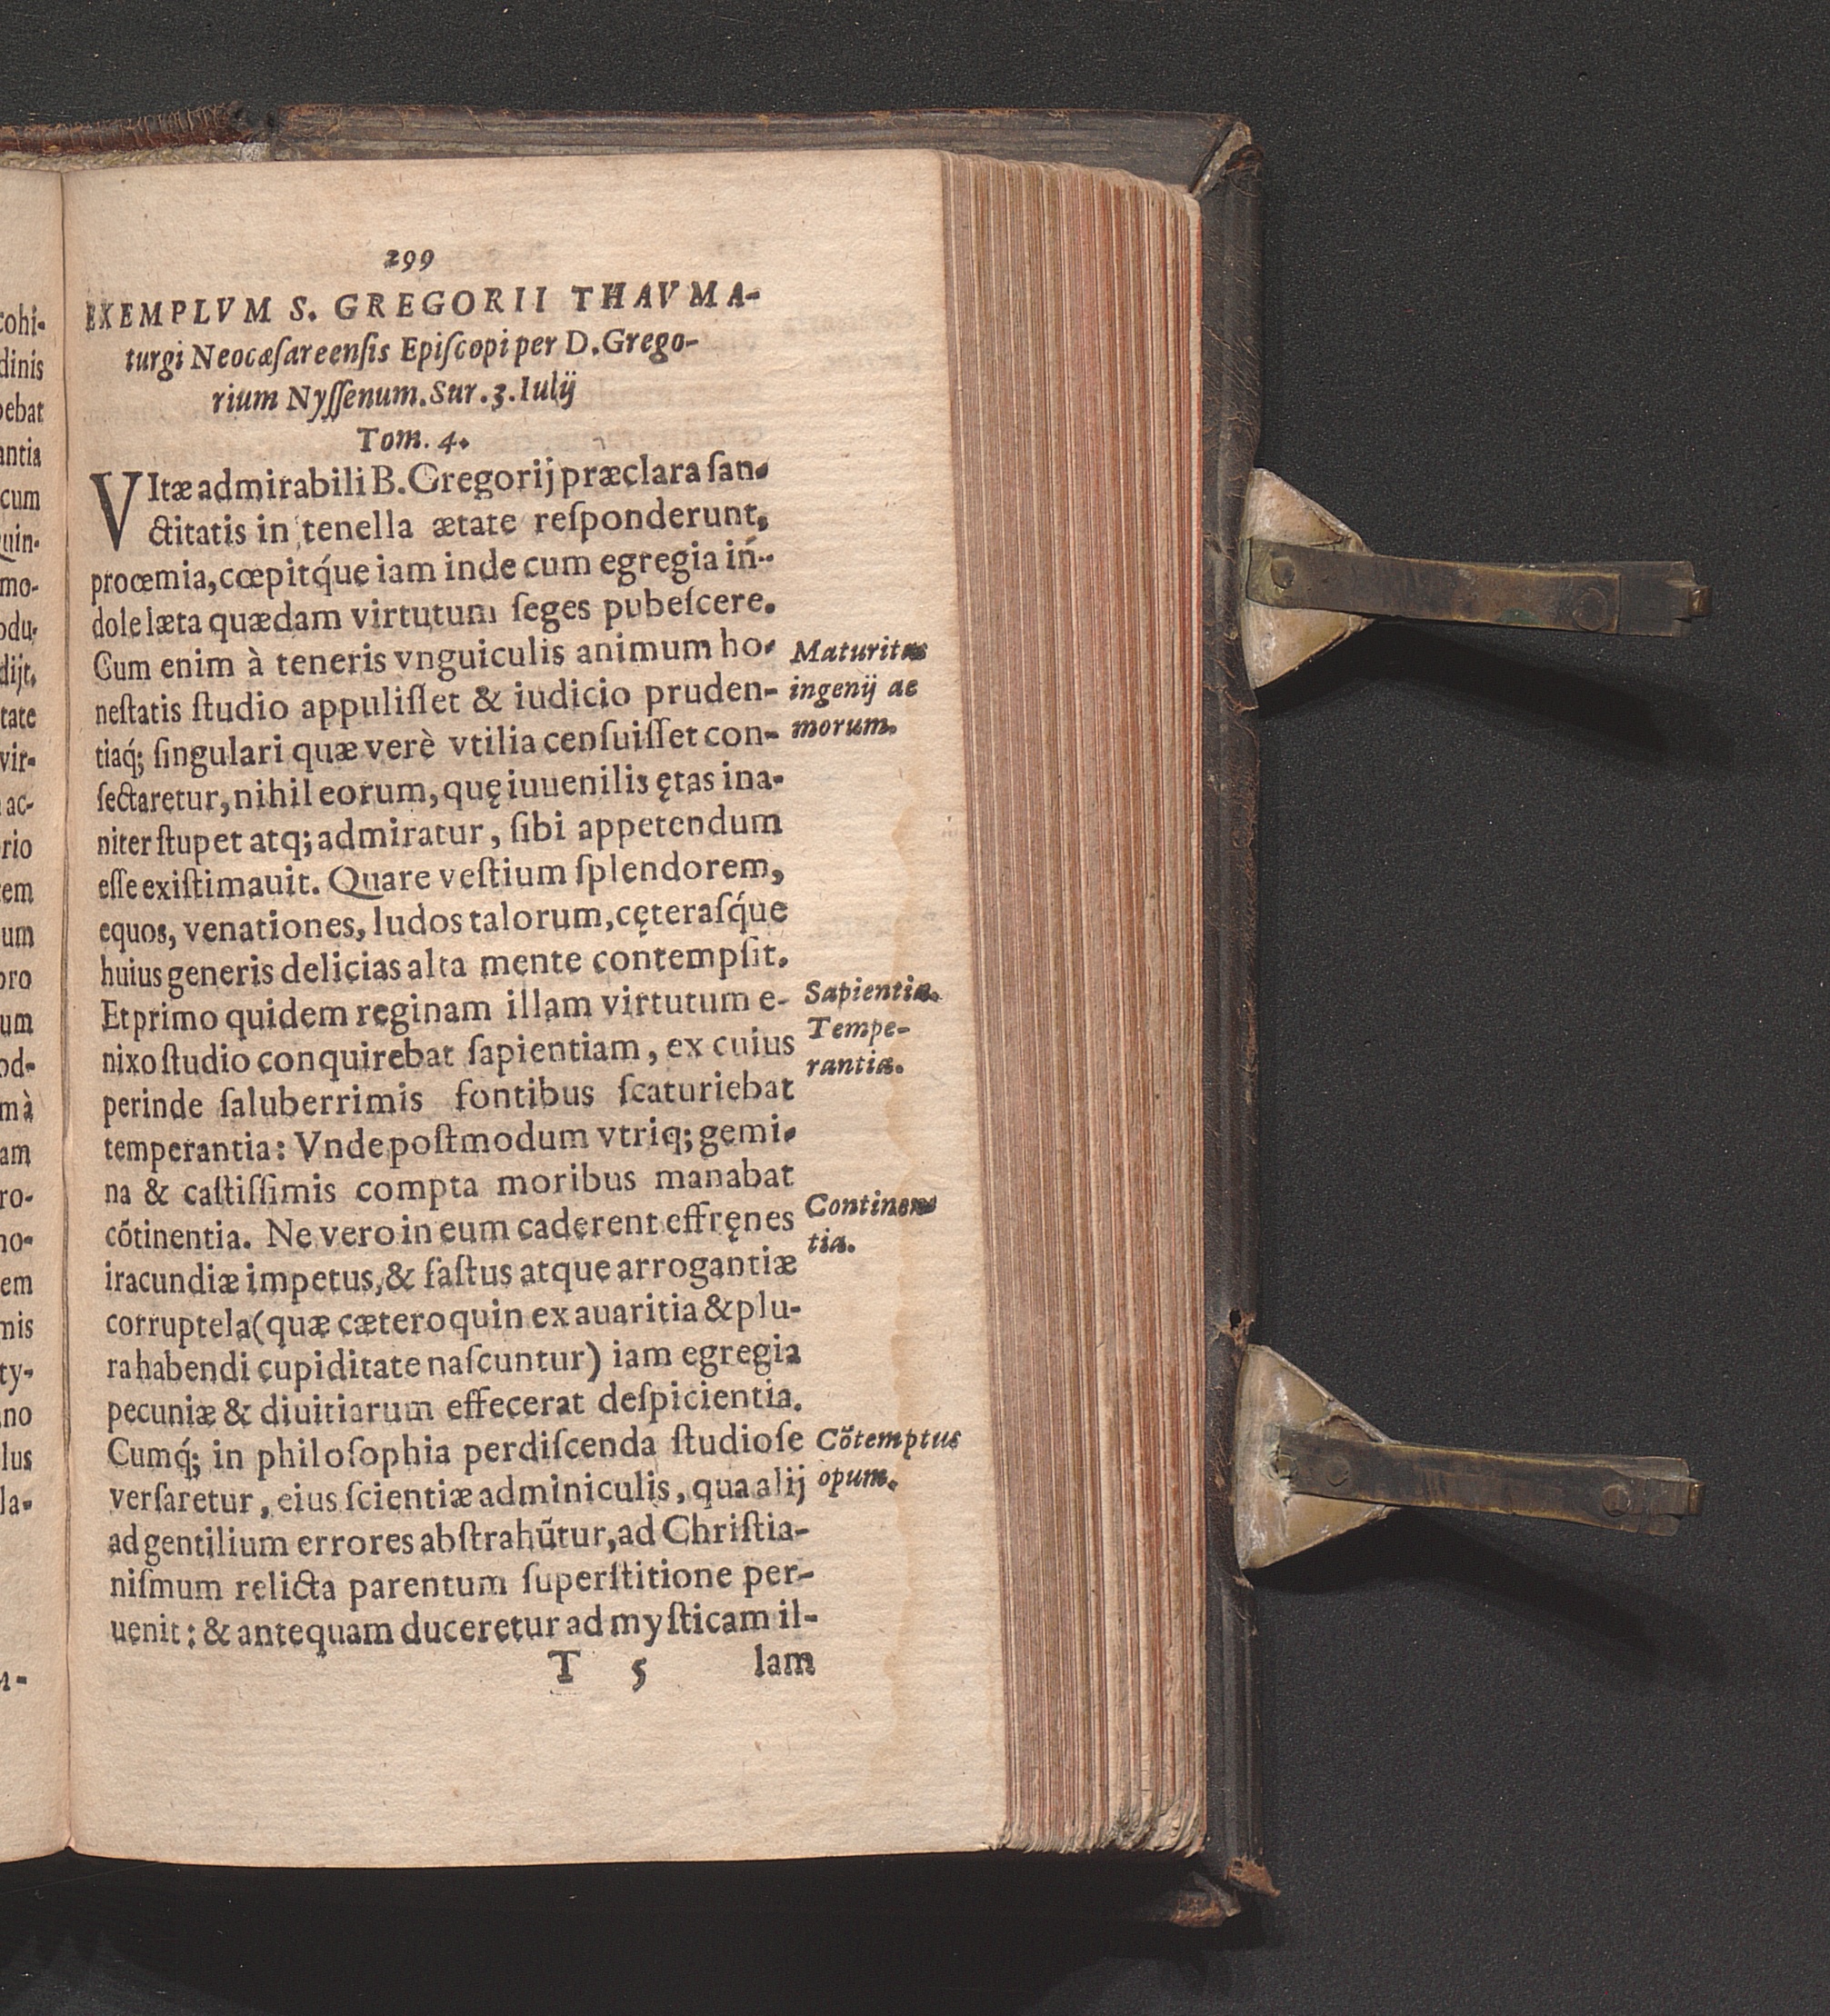 299
EXEMPLVM S. GREGORII THAVMA-
turgi Neocæſareenſis Epiſcopi per D. Grego-
rium Nyſſenum. Sur. 3. Iulij
Tom. 4.
VItæ admirabili B. Gregorij præclara ſan-
ctitatis in tenella ætate reſponderunt,
prœmia, cœpitq́ue iam inde cum egregia in-
dole læta quædam virtutum ſeges pubeſcere.
Cum enim à teneris vnguiculis animum ho-
neſtatis ſtudio appuliſſet & iudicio pruden-
tiaq́; ſingulari quæ verè vtilia cenſuiſſet con-
ſectaretur, nihil eorum, quę iuuenilis ętas ina-
niter ſtupet atq; admiratur, ſibi appetendum
eſſe exiſtimauit. Quare veſtium ſplendorem,
equos, venationes, ludos talorum, cęteraſq́ue
huius generis delicias alta mente contempſit.
Et primo quidem reginam illam virtutum e-
nixo ſtudio conquirebat ſapientiam, ex cuius
perinde ſaluberrimis fontibus ſcaturiebat
temperantia: Vnde poſtmodum vtriq; gemi-
na & caſtiſsimis compta moribus manabat
cõtinentia. Ne vero in eum caderent effręnes
iracundiæ impetus, & faſtus atque arrogantiæ
corruptela (quæ cæteroquin ex auaritia & plu-
ra habendi cupiditate naſcuntur) iam egregia
pecuniæ & diuitiarum effecerat deſpicientia.
Cumq́; in philoſophia perdiſcenda ſtudioſe
verſaretur, eius ſcientiæ adminiculis, qua alij
ad gentilium errores abſtrahũtur, ad Chriſtia-
niſmum relicta parentum ſuperſtitione per-
uenit: & antequam duceretur ad myſticam il-
T 5 lam
Maturitas
ingenij ac
morum.
Sapientia.
Tempe-
rantia.
Continen-
tia.
Cõtemptus
opum.
cohi-
dinis
bebat
antia
cum
quin-
mo-
odu-
dijt.
tate
vir-
ac-
rio
rem
um
pro
um
od-
mà
am
ro-
no-
em
mis
ty-
no
lus
la-